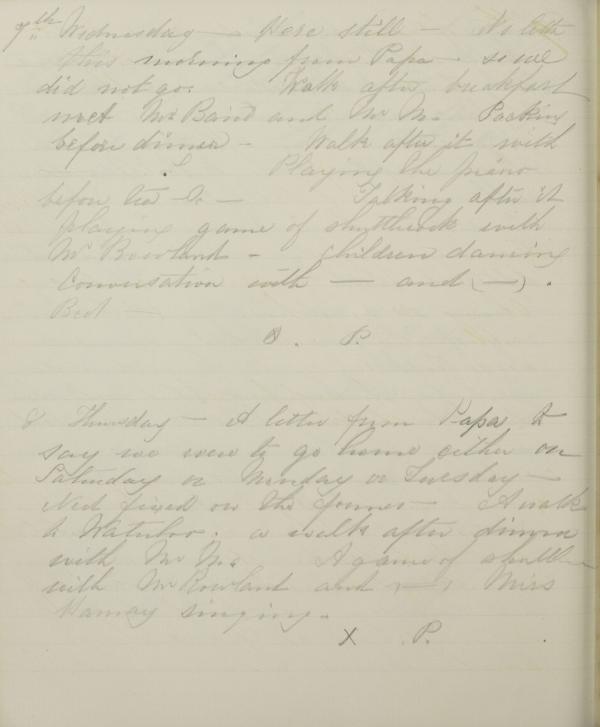 7th Wednesday — Here still — No letter
this morning from Papa - so we
did not go. Walk after breakfast
met Mr Baird and Mr M. Packing
before dinner - Walk after it with
— . Playing the piano
before tea &c — Talking after it
playing game of shuttlecock with
Mr Rowland - children dancing
Conversation with — and (—).
Bed —
X. P.
8 Thursday — A letter from Papa to
say we were to go home either on
Saturday or Monday or Tuesday —
Ned fixed on the former — A walk
to Waterloo. a walk after dinner
with Mr M. A game of shuttle
with Mr Rowland and (—) Miss
Ramsay singing.
X P.